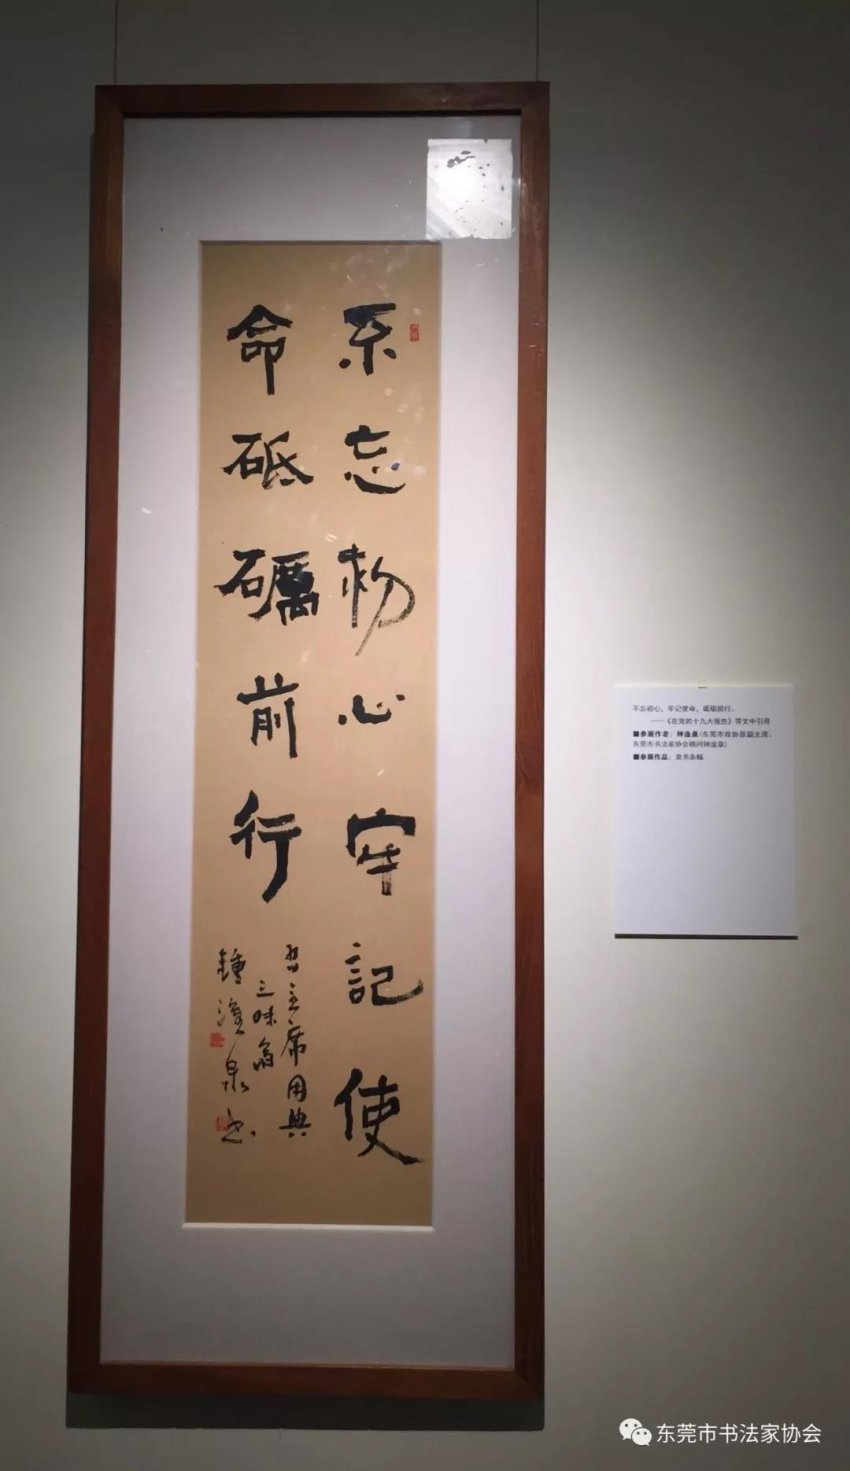 不忘初心牢记使
命砥礪前行
習主席用典
三味翁
鍾淦泉书
不忘初心，牢记使命，砥砺前行。
——《在党的十九大报告》等文中引用
■参展作者：钟淦泉（东莞市政协原副主席、
东莞市书法家协会顾问钟淦泉）
■参展作品：隶书条幅
东莞市书法家协会